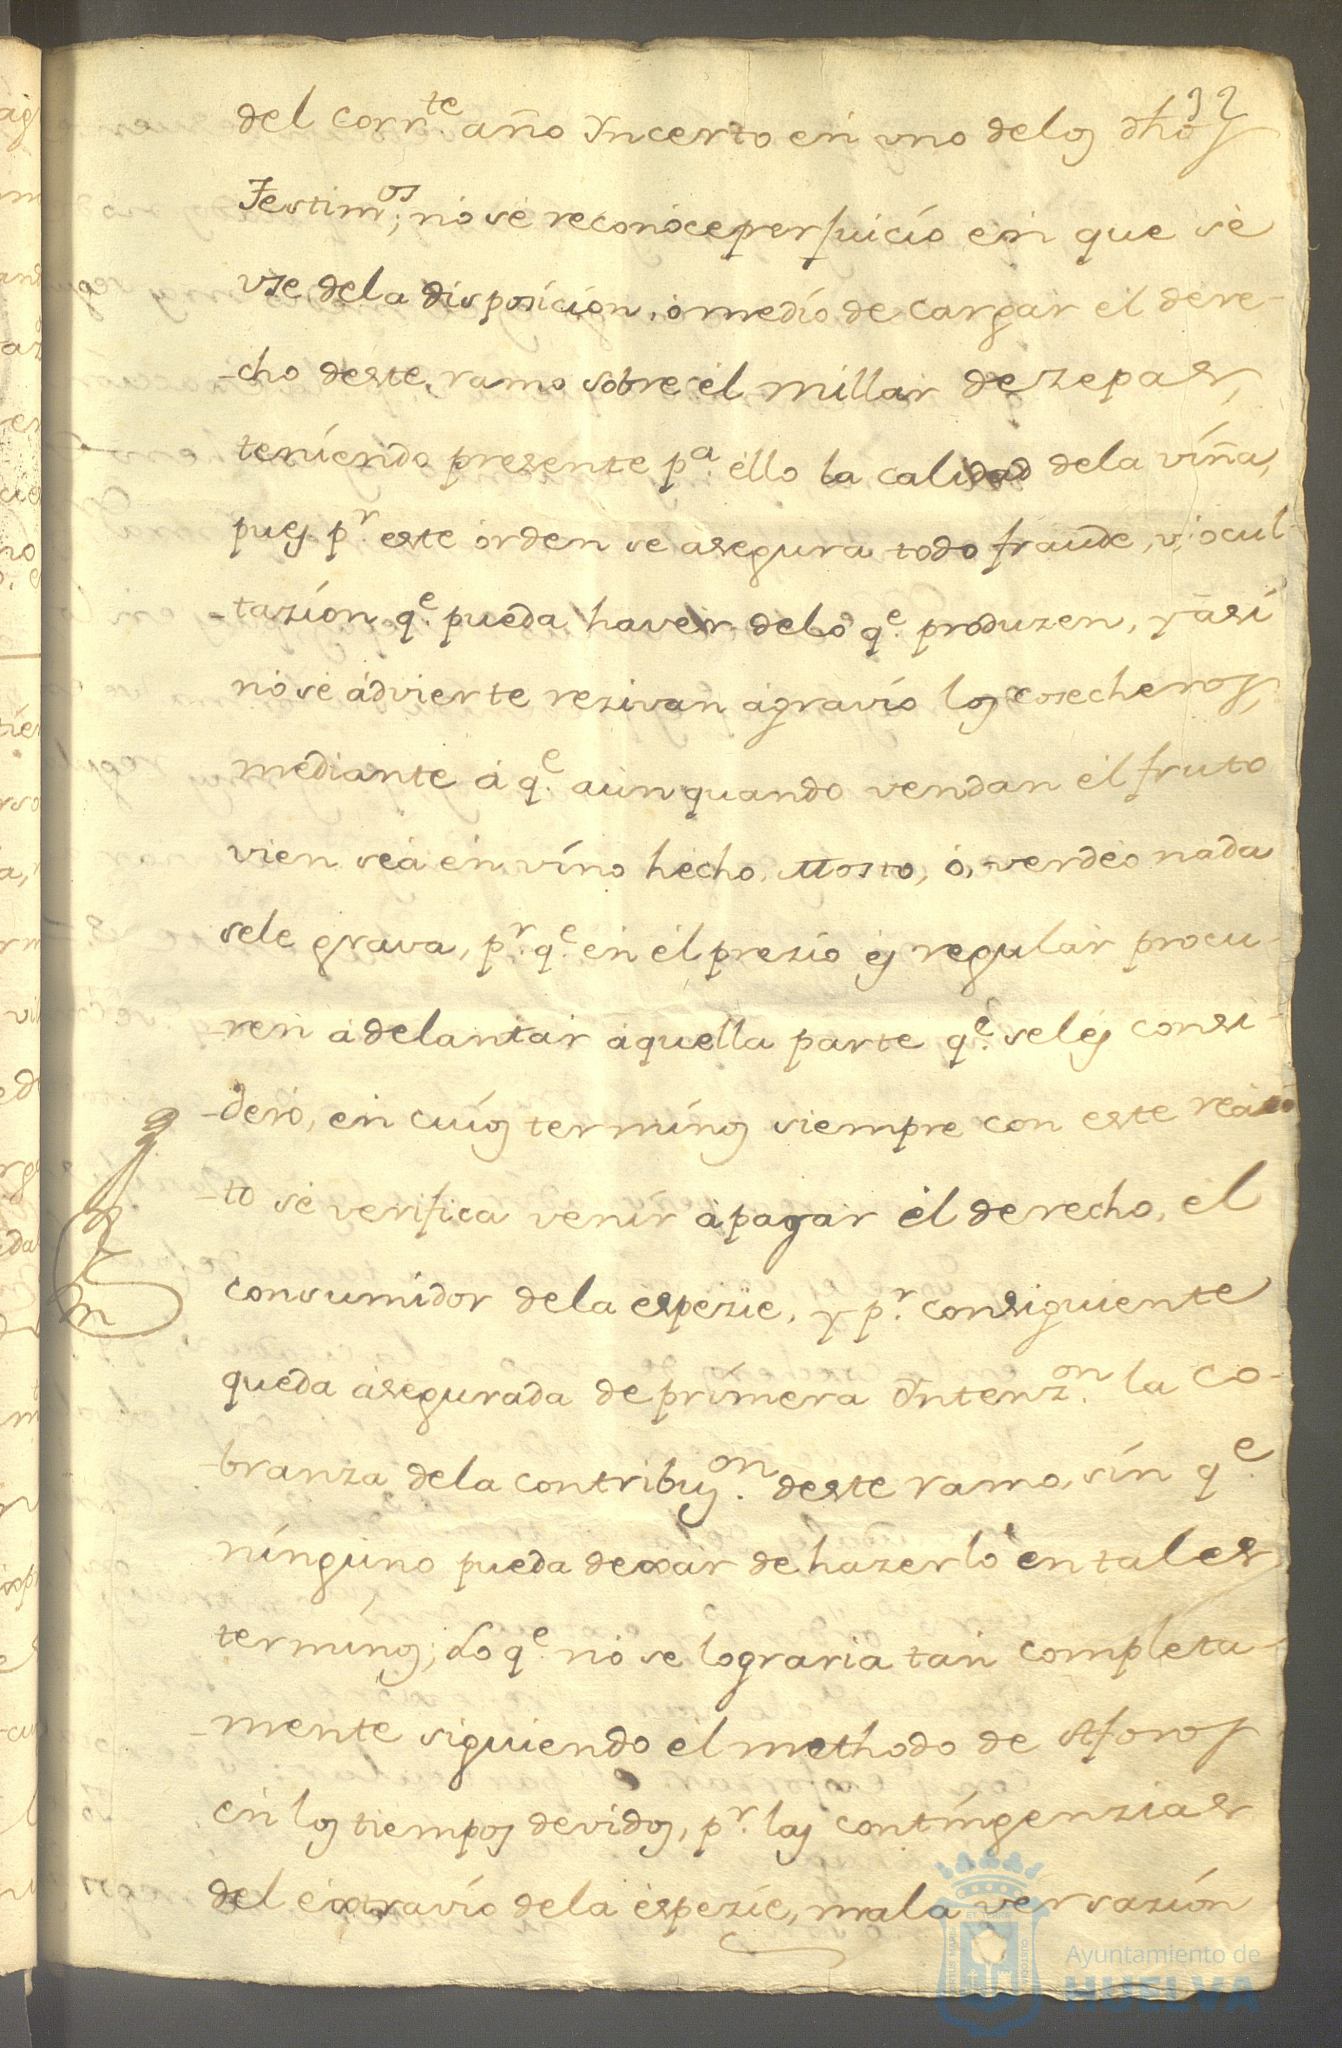 32
del corr.te año Yncerto en vno delos dhos
Testim.os; no se reconoce perjuicio en que se
vse dela disposicion, ò medio de cargar el dere-
-cho deste ramo sobre el millar de zepas,
teniendo presente p.a ello la calidad dela viña,
pues p.r este orden se asegura todo fraude, ù ocul-
-tazion q.e pueda haver delo q.e produzen, y asi
no se advierte rezivan agravio los cosecheros,
mediante à q.e aun quando vendan el fruto
vien sea en vino hecho, Mosto, ò verdeo nada
sele grava, p.r q.e en el prezio es regular procu-
-ren adelantar aquella parte q.e seles consi-
-derò, en cuios terminos siempre con este rea-
-to se verifica venir à pagar el derecho, el
consumidor dela espezie, y p.r consiguiente
queda asegurada de primera Yntenz.on la co-
-branza dela contribuz.on deste ramo, sin q.e
ninguno pueda dexar de hazerlo en tales
terminos; Lo q.e no se lograria tan completa-
-mente siguiendo el methodo de Aforos
en los tiempos devidos, p.r las contingenzias
del extravio dela espezie, mala versazion
Ayuntamiento de
HUELVA